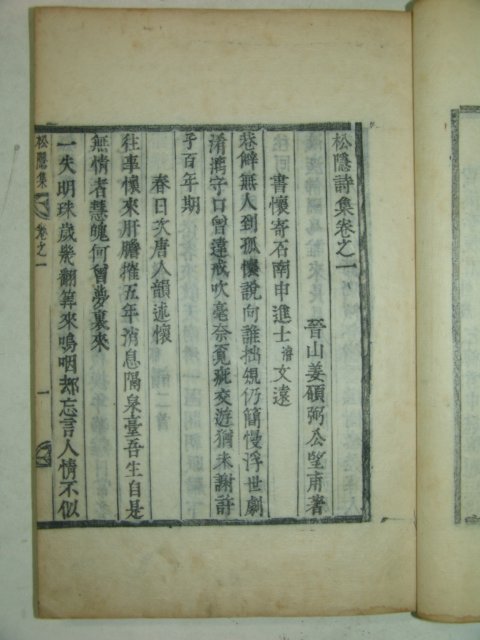 松隱詩集卷之一
晉山姜碩弼公望甫著
書懷寄石南申進士濬文遠
巷僻無人到孤懷說向誰拙規仍簡慢浮世劇
淆漓守口曾違戒吹毫奈覓疵交遊猶未謝許
子百年期
春日次唐人韻述懷
往事懷來肝膽摧五年消息隔泉臺吾生自是
無情者慧魄何曾夢裏來
一失明珠歲幾翻算來嗚咽却忘言人情不似
松隱集
卷之一
一